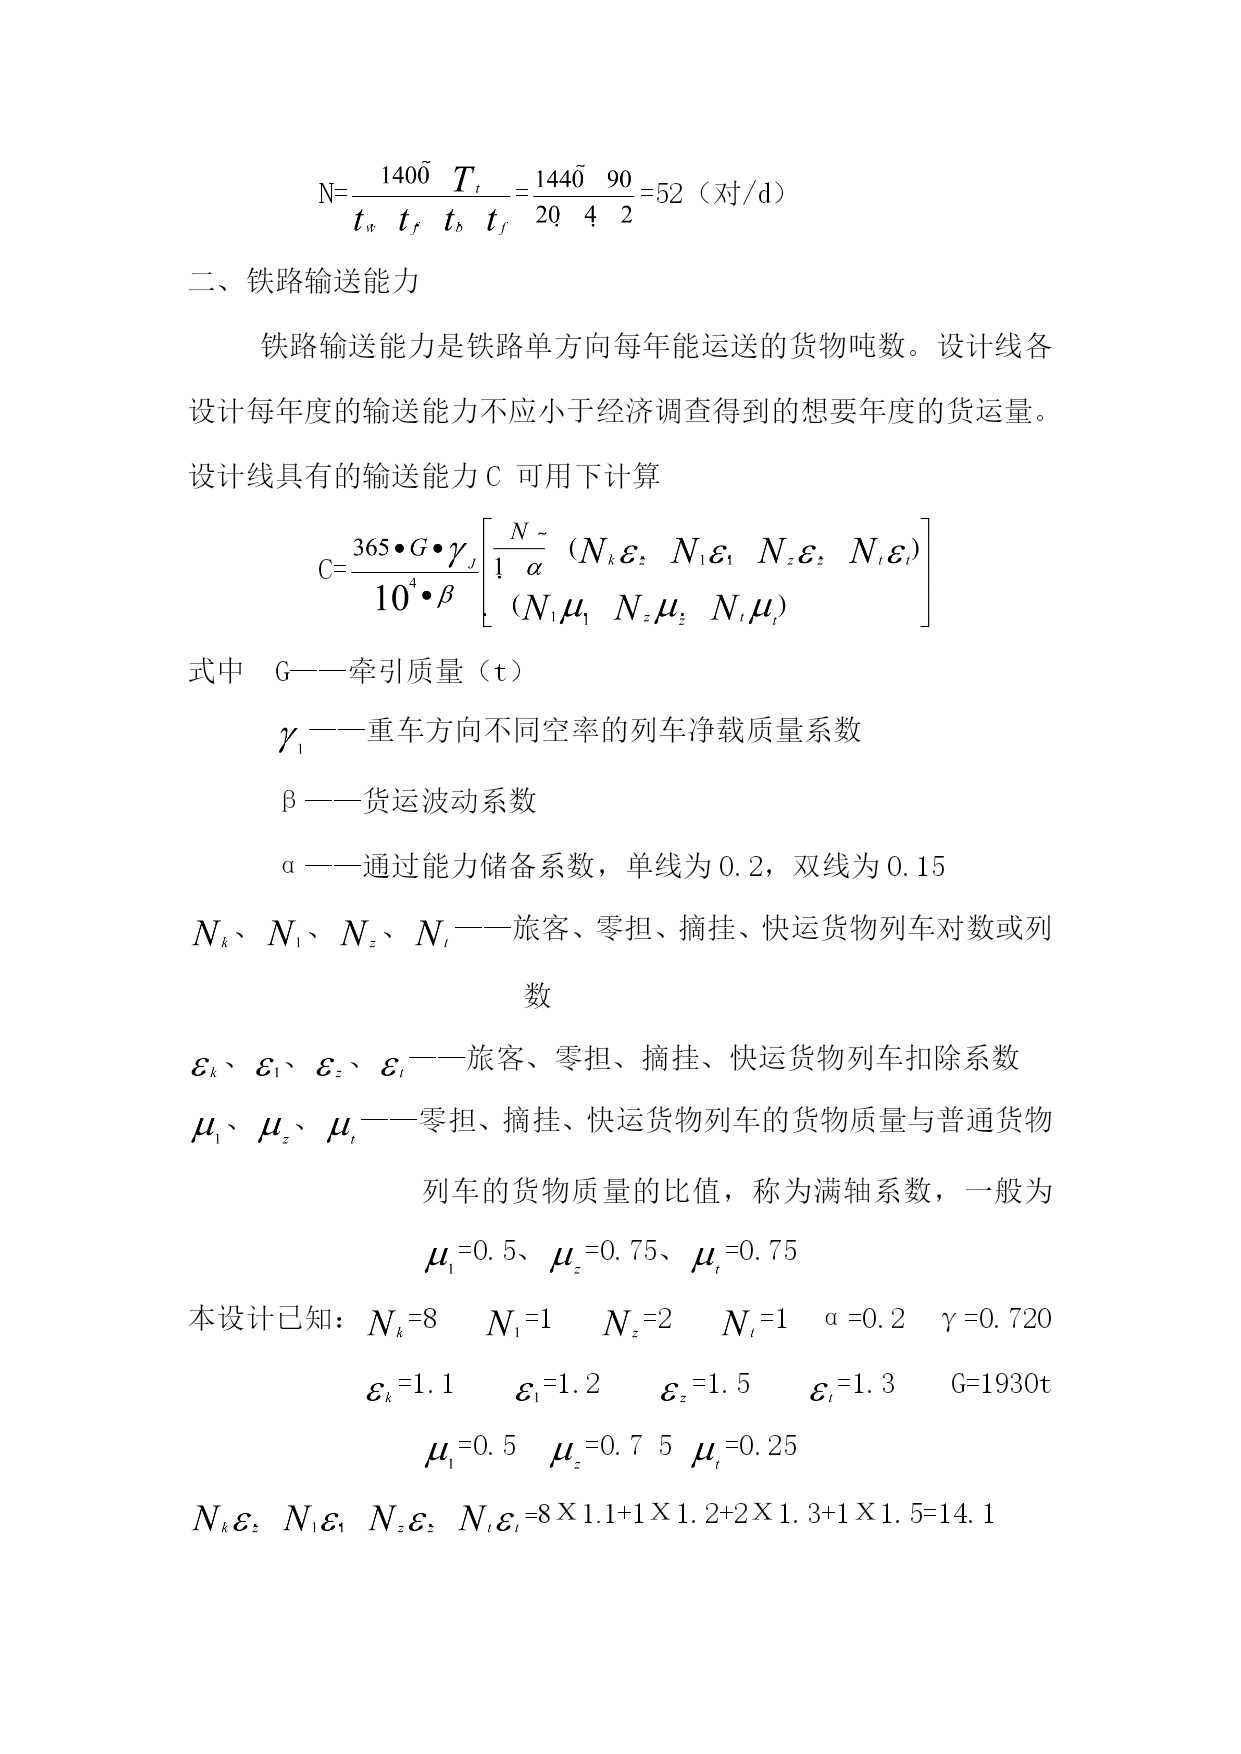 N=1400̃ T_t / t_w t_f t_b t_f =1440̃ 90 / 20 4 2 =52（对/d）
二、铁路输送能力
铁路输送能力是铁路单方向每年能运送的货物吨数。设计线各
设计每年度的输送能力不应小于经济调查得到的想要年度的货运量。
设计线具有的输送能力C 可用下计算
C=365•G•γ_J / 10^4•β [N / 1 α ~ (N_kε N_1ε_1 N_zε_z N_tε_t)
(N_1μ_1 N_zμ_z N_tμ_t)]
式中 G——牵引质量（t）
γ_1——重车方向不同空率的列车净载质量系数
β——货运波动系数
α——通过能力储备系数，单线为0.2，双线为0.15
N_k、N_1、N_z、N_t——旅客、零担、摘挂、快运货物列车对数或列
数
ε_k、ε_1、ε_z、ε_t——旅客、零担、摘挂、快运货物列车扣除系数
μ_1、μ_z、μ_t——零担、摘挂、快运货物列车的货物质量与普通货物
列车的货物质量的比值，称为满轴系数，一般为
μ_1=0.5、μ_z=0.75、μ_t=0.75
本设计已知：N_k=8 N_1=1 N_z=2 N_t=1 α=0.2 γ=0.720
ε_k=1.1 ε_1=1.2 ε_z=1.5 ε_t=1.3 G=1930t
μ_1=0.5 μ_z=0.7 5 μ_t=0.25
N_kε N_1ε_1 N_zε_z N_tε_t=8X1.1+1X1.2+2X1.3+1X1.5=14.1